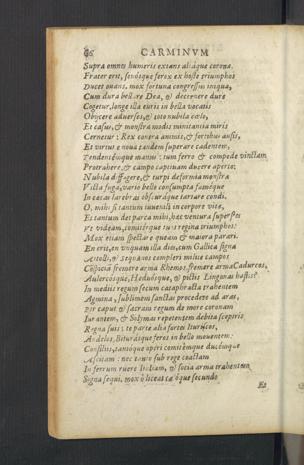 86 CARMINVM
Supra omnes humeris extans aliáque corona.
Frater erit, seuósque ferox ex hoste triumphos
Ducet ouans, mox fortuna congressus iniqua,
Cum dura bellare Dea, & decernere dura
Cogetur, longe illa euris in bella vocatis
Obijcere aduersos, & toto nubila cœlo,
Et casus, & monstra modis mimitantia miris
Cernetur: Rex contra animis, & fortibus ausis,
Et virtus e noua tandem superare cadentem,
Tendentémque manus: tum ferro & compede vinctam
Protrahere, & campo captiuam ducere aperto:
Nubila diffugere, & turpi deformia monstra
Victa fuga, vario belle consumpta faméque
In cæcas latebras obscuráque tartara condi.
O, mihi si tantum
Et tantum det parca mihi, hæc ventura superstes
Vt videam, comitérque tuos regina triumphos:
Mox etiam spectare queam & maiora parari.
En erit, en vnquam illa dies, cum Gallica signa
Attolli, & Sequanos compleri milite campos
Conspiciā fremere arma Rhemos, fremere arma Cadurcos,
Aulercósque, Heduósque, & pictis Lingonas hastis?
In medijs regum secum cataphracta trahentem
Agmina, sublimem sanctas procedere ad aras,
Per caput & sacram regum de more coronam
Iurantem, & Solymas repetentem debita sceptris
Regna suis: te parte alia fortes Ituricos,
Andelos, Biturásque feros in bello mouentem:
Consilijs, tantóque operi comitémque ducémque
Ascitam: nec tamen sub rege coactam
In ferrum ruere Italiam, & socia arma trahentem
Signa sequi, mox ô liceat ta ôque secundo
Et